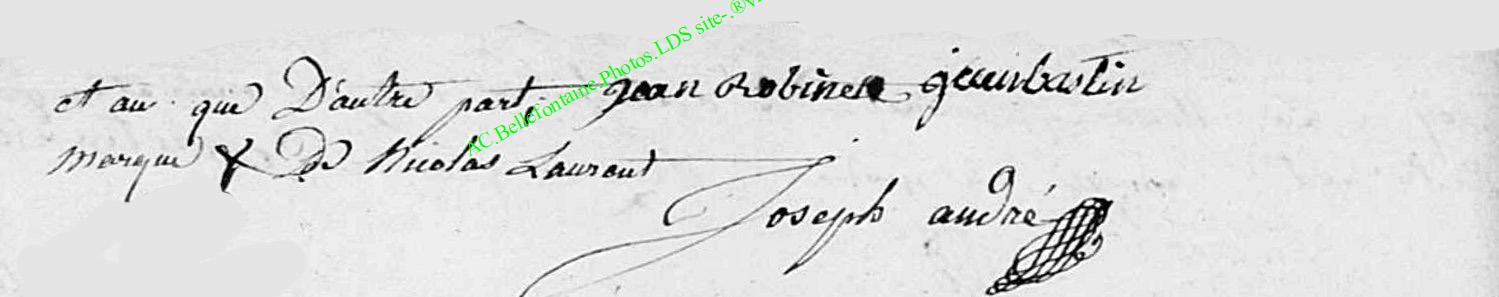 et au que D'autre part, jean Robinet jean bastin
marque X De Nicolas Laurent
Joseph andré
AC.Bellefontaine.Photos.LDS site-.®